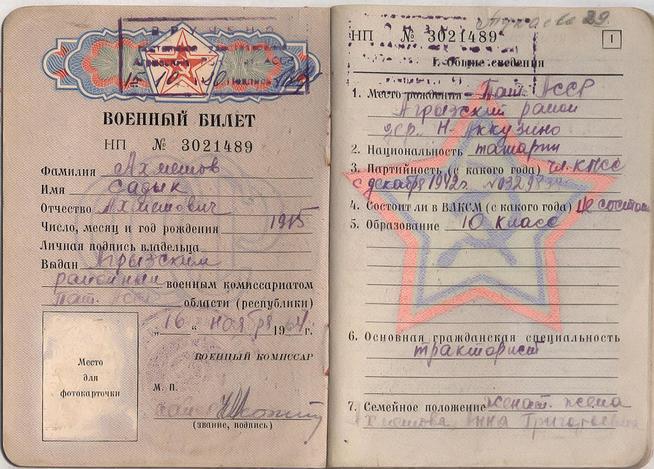 ВОЕННЫЙ БИЛЕТ
НП № 3021489
Фамилия Ахметов
Имя Садык
Отчество Ахметович
Число, месяц и год рождения 1915
Личная подпись владельца
Выдан Агрызским
районным военным комиссариатом
Тат. АССР области (республики)
„16“ ноября 1964 г.
ВОЕННЫЙ КОМИССАР
Место
для
фотокарточки
М. П.
(звание, подпись)
29.
НП № 3021489 1
I. Общие сведения
1. Место рождения Тат. АССР
Агрызский район
дер. Н. Аккузино
2. Национальность татарин
3. Партийность (с какого года) чл. КПСС
с декабря 1942 г.
4. Состоит ли в ВЛКСМ (с какого года) не состоит
5. Образование 10 класс
6. Основная гражданская специальность
тракторист
7. Семейное положение женат. жена
Ахметова Анна Григорьевна